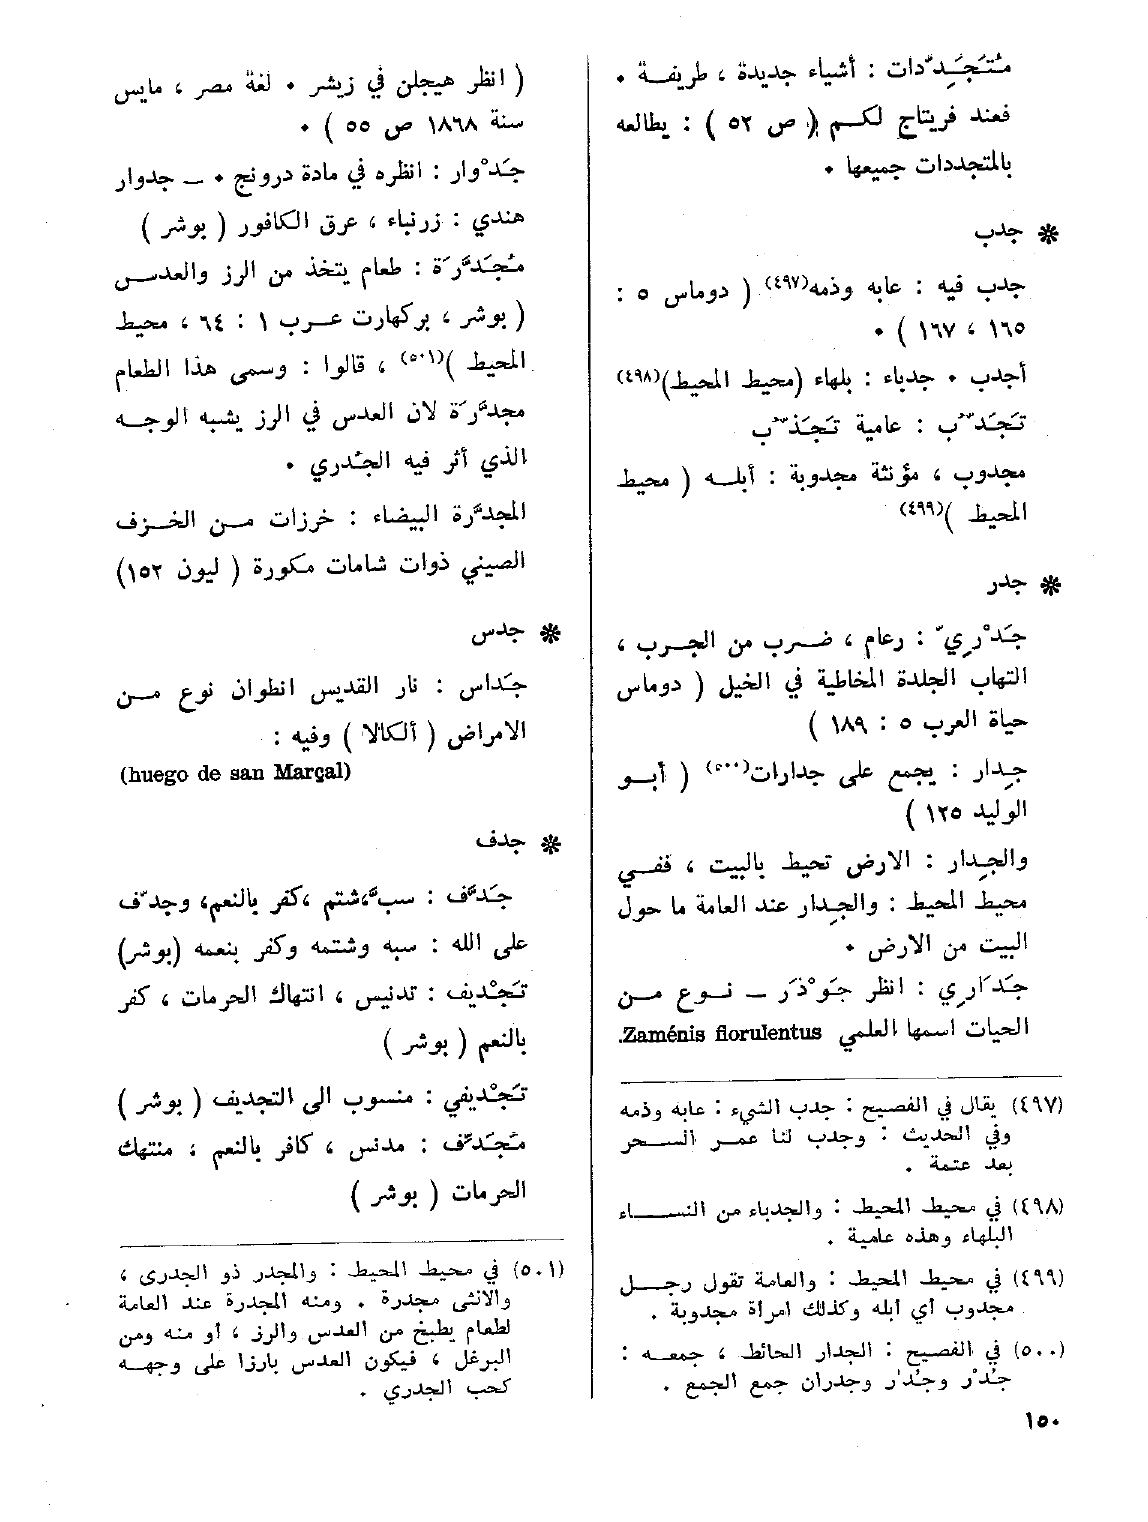 مُتَجَدِّدات : أشياء جديدة ، طريفة .
فعند فريتاج لكم ( ص ٥٢ ) : يطالعه
بالمتجددات جميعها .
* جدب
جدب فيه : عابه وذمه(٤٩٧) ( دوماس ٥ :
١٦٥ ، ١٦٧ ) .
أجدب . جدباء : بلهاء (محيط المحيط)(٤٩٨)
تَجَدَّب : عامية تَجَذَّب
مجدوب ، مؤنثة مجدوبة : أبله ( محيط
المحيط )(٤٩٩)
* جدر
جَدْرِيّ : رعام ، ضرب من الجرب ،
التهاب الجلدة المخاطية في الخيل ( دوماس
حياة العرب ٥ : ١٨٩ )
جِدار : يجمع على جدارات(٥٠٠) ( أبو
الوليد ١٢٥ )
والجِدار : الارض تحيط بالبيت ، ففي
محيط المحيط : والجِدار عند العامة ما حول
البيت من الارض .
جَدَارِي : انظر جَوْذَر ــ نوع من
الحيات اسمها العلمي Zaménis florulentus.
(٤٩٧) يقال في الفصيح : جدب الشيء : عابه وذمه
وفي الحديث : وجدب لنا عمر السحر
بعد عتمة .
(٤٩٨) في محيط المحيط : والجدباء من النساء
البلهاء وهذه عامية .
(٤٩٩) في محيط المحيط : والعامة تقول رجل
مجدوب أي ابله وكذلك امرأة مجدوبة .
(٥٠٠) في الفصيح : الجدار الحائط ، جمعه :
جُدْر وجُدُر وجدران جمع الجمع .
( انظر هيجلن في زيشر . لغة مصر ، مايس
سنة ١٨٦٨ ص ٥٥ ) .
جَدْوار : انظره في مادة درونج . ــ جدوار
هندي : زرنباء ، عرق الكافور ( بوشر )
مُجَدَّرَة : طعام يتخذ من الرز والعدس
( بوشر ، بركهارت عرب ١ : ٦٤ ، محيط
المحيط )(٥٠١) ، قالوا : وسمى هذا الطعام
مجدَّرَة لان العدس في الرز يشبه الوجه
الذي أثر فيه الجُدري .
المجدَّرة البيضاء : خرزات من الخزف
الصيني ذوات شامات مكورة ( ليون ١٥٢)
* جدس
جَداس : نار القديس انطوان نوع من
الامراض ( ألكالا ) وفيه :
(huego de san Marçal)
* جدف
جَدَّف : سبَّ،شتم ،كفر بالنعم، وجدّف
على الله : سبه وشتمه وكفر بنعمه (بوشر)
تَجْديف : تدنيس ، انتهاك الحرمات ، كفر
بالنعم ( بوشر )
تَجْديفي : منسوب الى التجديف ( بوشر )
مُجَدِّف : مدنس ، كافر بالنعم ، منتهك
الحرمات ( بوشر )
(٥٠١) في محيط المحيط : والمجدر ذو الجدرى ،
والانثى مجدرة . ومنه المجدرة عند العامة
لطعام يطبخ من العدس والرز ، أو منه ومن
البرغل ، فيكون العدس بارزا على وجهه
كحب الجدري .
١٥٠